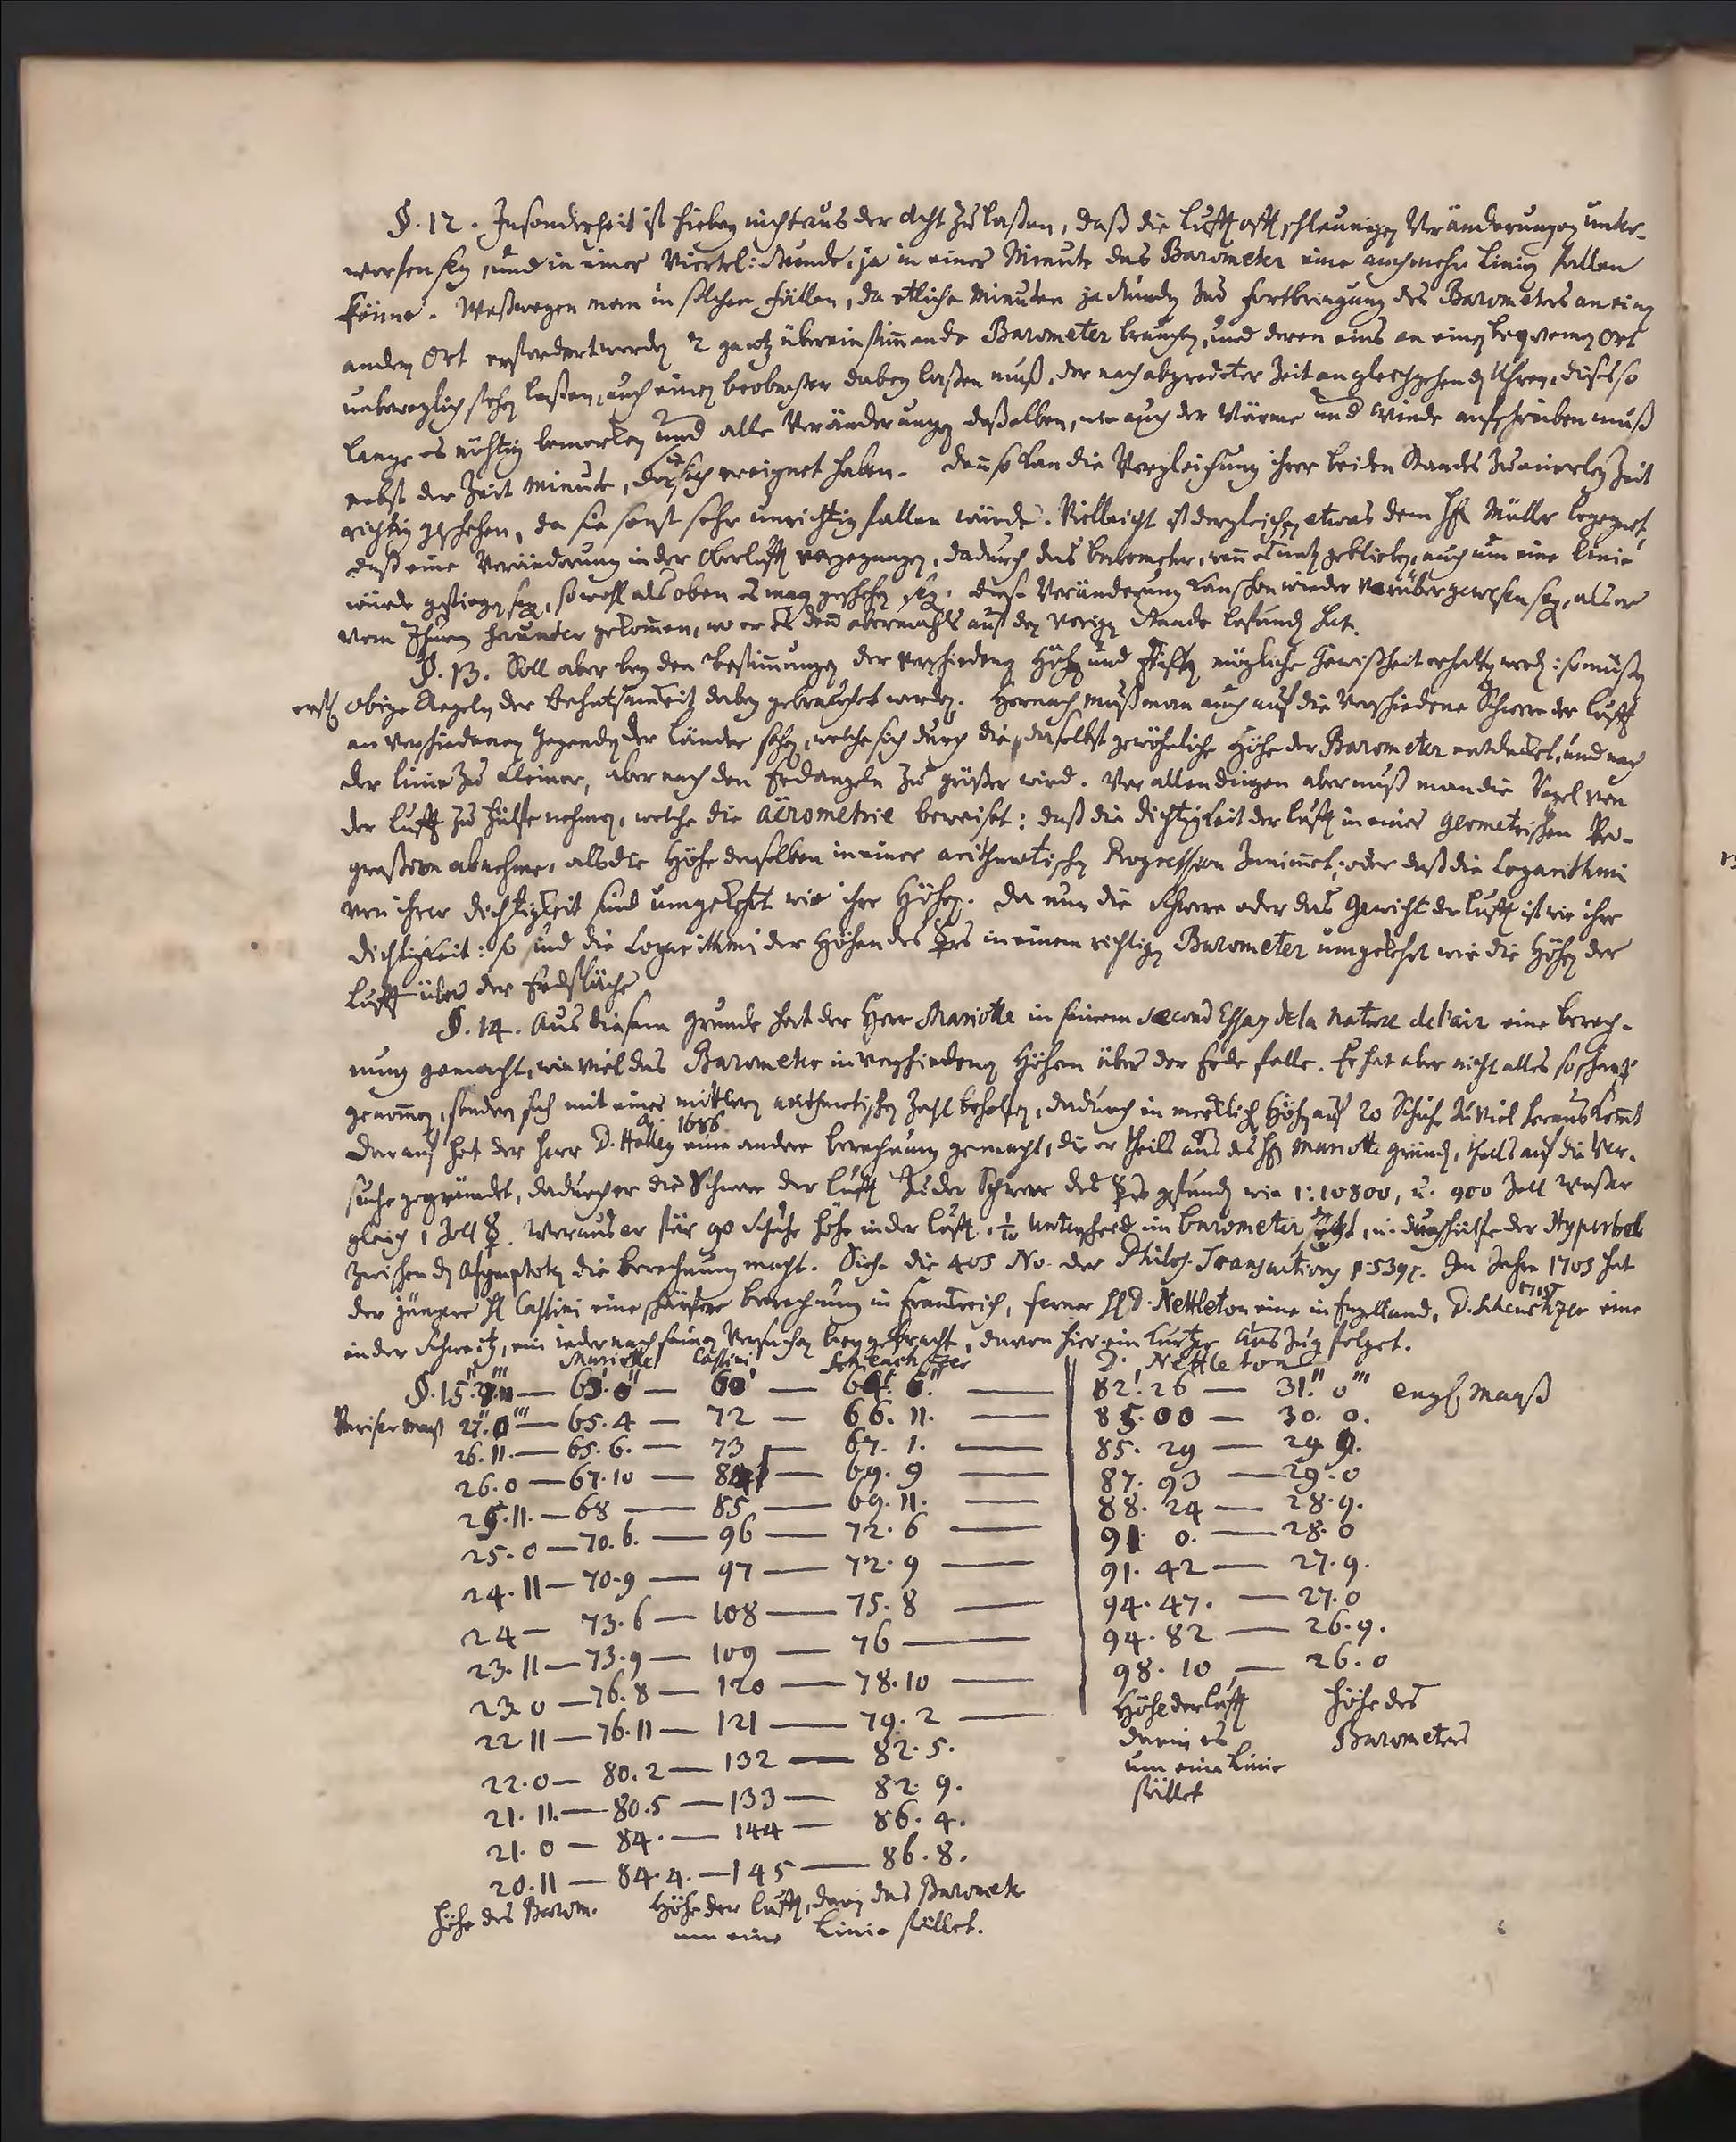 §. 12. Insonderheit ist hiebey nicht aus der Acht zu laßen, daß die Lufft offt schleunigen Veränderungen unter-
worfen sey, und in einer Viertel: Stunde, ja in einer Minute das Barometer eine auch mehr Linien fallen
könne. Weßwegen man in solchen Fällen, da etliche Minuten ja Stunden zur Fortbringung des Barometers an einen
andern Ort erfordert werden 2 gantz übereinstimmende Barometer brauchen, und deren eins an einen beqvemen Ort
unbeweglich stehen laßen, auch einen beobachter dabey laßen muß, der nach abgeredeter Zeit an gleichgehenden Uhren, dieses so
lange es nöhtig bemerken und alle Veränderungen deßelben, wie auch der Wärme und Winde aufschreiben muß
nebst der Zeit Minute, da sie sich ereignet haben. Denn so kan die Vergleichung ihrer beiden Stande zu einerley Zeit
richtig geschehen, da sie sonst sehr unrichtig fallen würde. Vielleicht ist dergleichen etwas dem H. Müller begegnet,
daß eine Veränderung in der Oberlufft vorgegangen, dadurch das barometer, wenn es unten geblieben, auch um eine Linie
würde gestiegen seyn, so wohl als oben es mag geschehen seyn. diese Veränderung kan schon wieder vorüber gewesen seyn, als er
vom Thurm herunter gekommen, wo er es denn abermahls auf den vorigen Stande befunden hat.
§. 13. Soll aber bey den Bestimmungen der verschiedenen Höhen und Tieffen mögliche Gewißheit erhalten werden: so müßen
erstl. obige Regeln der Behutsamkeit dabey gebrauchet werden. Hernach muß man auch auf die verschiedene Schwere der Lufft
an verschiedenen Gegenden der Länder sehen, welche sich durch die daselbst gewöhnliche Höhe der Barometer entdecket, und nach
der Linie zu kleiner, aber nach den Erdangeln zu größer wird. Vor allen dingen aber muß man die Regel von
der Lufft zu Hülfe nehmen, welche die Aërometrie beweiset: daß die dichtigkeit der Lufft in einer Geometrischen Pro-
greßion abnehme, als die Höhe derselben in einer arithmetischen Progression zunimmet; oder daß die Logarithmi
von ihrer dichtigkeit sind umgekehrt wie ihre Höhen. Da nun die Schwere oder das Gewicht der Lufft ist wie ihre
dichtigkeit: so sind die Logarithmi der Höhen des ☿rs in einem richtigen Barometer umgekehrt wie die Höhen der
Lufft über der Erdfläche
§. 14. Aus diesem Grunde hat der Herr Mariotte in seinem second Essay de la nature de l'air eine berech-
nung gemacht, wie viel das Barometer in verschiedenen Höhen über der Erde falle. Er hat aber nicht alles so scharf
genommen, sondern sich mit einer mittlern arithmetischen Zahl beholfen, dadurch in merklichen Höhen auf 20 Schuh zu viel heraus kommt
Darauf hat der Herr D. Halley A. 1686. eine andere berechnung gemacht, die er theils aus des H. Mariotte gründen, theils auf die Ver-
suche gegründet, dadurch er die Schwere der Lufft zu der Schwere des ☿rs gefunden wie 1:10800, u. 900 Zoll Waßer
gleich 1 Zoll ☿. Woraus er für 90 Schuhe Höhe in der Lufft 1/10 Unterscheid im barometer setzt, u. durch hülfe der Hyperbel
zwischen den Asymptoten die berechnung macht. Siehe die 403 No. der Philos. Transactions p. 539. Im Jahre 1703 hat
der jüngere H. Cassini eine schärfere berechnung in Franckreich, ferner H. D. Nettleton eine in Engelland, D. Scheuchzer eine
in der Schweitz, ein ieder nach seinen Versuchen beygebracht, davon hier ein kurtzer Auszug folget.
Mariotte Cassini Scheuchzer D. Nettleton
§. 15. — 60' — 82'. 26 — 31." 0''' engl. Maaß
Pariser maaß 27." 0''' — 65. 4 — 72 — 66. 11. — 85. 00 — 30. 0.
26. 11. — 65. 6. — 73 — 67. 1. — 85. 29 — 29. 9.
26. 0 — 67. 10 — 84 — 69. 9 — 87. 93 — 29. 0
25. 11. — 68 — 85 — 69. 11. — 88. 24 — 28. 9.
25. 0 — 70. 6. — 96 — 72. 6 — 91. 0. — 28. 0
24. 11 — 70. 9 — 97 — 72. 9 — 91. 42 — 27. 9.
24 — 73. 6 — 108 — 75. 8 — 94. 47. — 27. 0
23. 11 — 73. 9 — 109 — 76 — 94. 82 — 26. 9.
23. 0 — 76. 8 — 120 — 78. 10 — 98. 10 — 26. 0
22. 11 — 76. 11 — 121 — 79. 2 — Höhe der Lufft Höhe des
22. 0 — 80. 2 — 132 — 82. 5. darin es Barometers
21. 11. — 80. 5 — 133 — 82. 9. um eine Linie
21. 0 — 84. — 144 — 86. 4. fället
20. 11 — 84. 4. — 145 — 86. 8.
Höhe des Barom. Höhe der Lufft, darin das Barometer
um eine Linie fället.